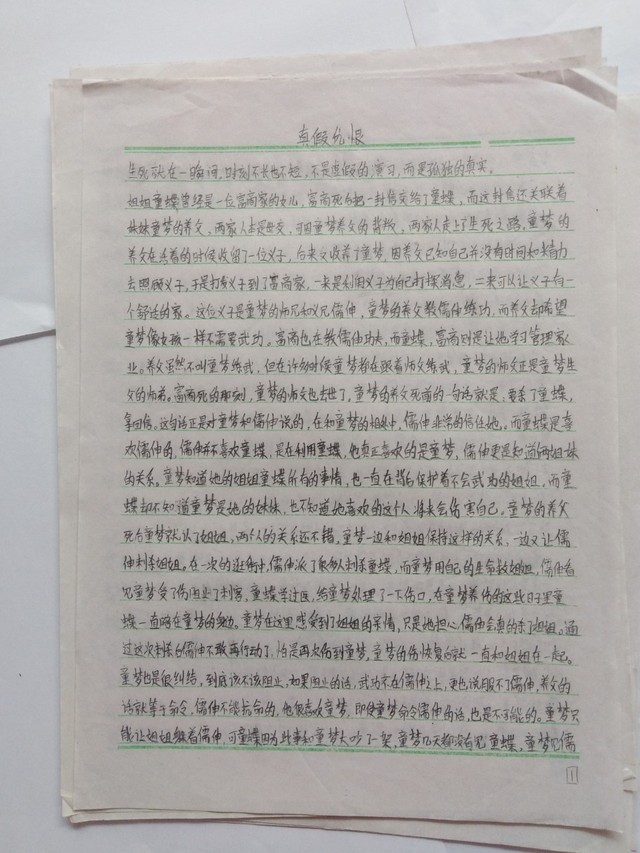 真假仇恨
生死就在一瞬间,时刻不长也不短,不是虚假的演习,而是孤独的真实。
姐姐童蝶曾经是一位富商家的女儿,富商死后把一封信交给了童蝶,而这封信还关联着
妹妹童梦的养父,两家人本是世交,可因童梦养父的背叛,两家人走上了生死之路,童梦的
养父在活着的时候收留了一位义子,后来又收养了童梦,因养父已知自己并没有时间和精力
去照顾义子,于是打发义子到了富商家,一来是利用义子为自己打探消息,二来可以让义子有一
个舒适的家。这位义子是童梦的师兄和义兄儒仲,童梦的养父教儒仲练功,而养父却希望
童梦像女孩一样不需要武功,富商也在教儒仲功夫,而童蝶,富商则是让她学习管理家
业。养父虽然不叫童梦练武,但在许多时候童梦都在跟着师父练武,童梦的师父正是童梦生
父的师弟。富商死的那刻,童梦的师父也去世了,童梦的养父死前的一句话就是:要杀了童蝶,
拿回信。这句话正是对童梦和儒仲说的,在和童梦的相处中,儒仲非常的信任她。而童蝶是喜
欢儒仲的,儒仲并不喜欢童蝶,是在利用童蝶,他真正喜欢的是童梦,儒仲更是知道俩姐妹
的关系。童梦知道她的姐姐童蝶所有的事情,也一直在背后保护着不会武功的姐姐,而童
蝶却不知道童梦是她的妹妹,也不知道她喜欢的这个人将来会伤害自己。童梦的养父
死后童梦就认了姐姐,两个人的关系还不错,童梦一边和姐姐保持这样的关系,一边又让儒
仲刺杀姐姐。在一次的逛街中,儒仲派了很多人刺杀童蝶,而童梦用自己的生命救姐姐,儒仲看
见童梦受了伤阻止了刺客,童蝶学过医,给童梦处理了一下伤口,在童梦养伤的这些日子里童
蝶一直陪在童梦的身边。童梦在这里感受到了姐姐的亲情,只是她担心,儒仲会真的杀了姐姐。通
过这次刺杀后儒仲不敢再行动了,怕是再次伤到童梦,童梦的伤恢复后就一直和姐姐在一起。
童梦也是很纠结,到底该不该阻止,如果阻止的话,武功不在儒仲之上,更也说服不了儒仲,养父的
话就等于命令,儒仲不能抗命的。他很喜欢童梦,即使童梦命令儒仲的话,也是不可能的。童梦只
能让姐姐躲着儒仲,可童蝶因为此事和童梦大吵了一架,童梦几天都没有见童蝶。童梦见儒
1